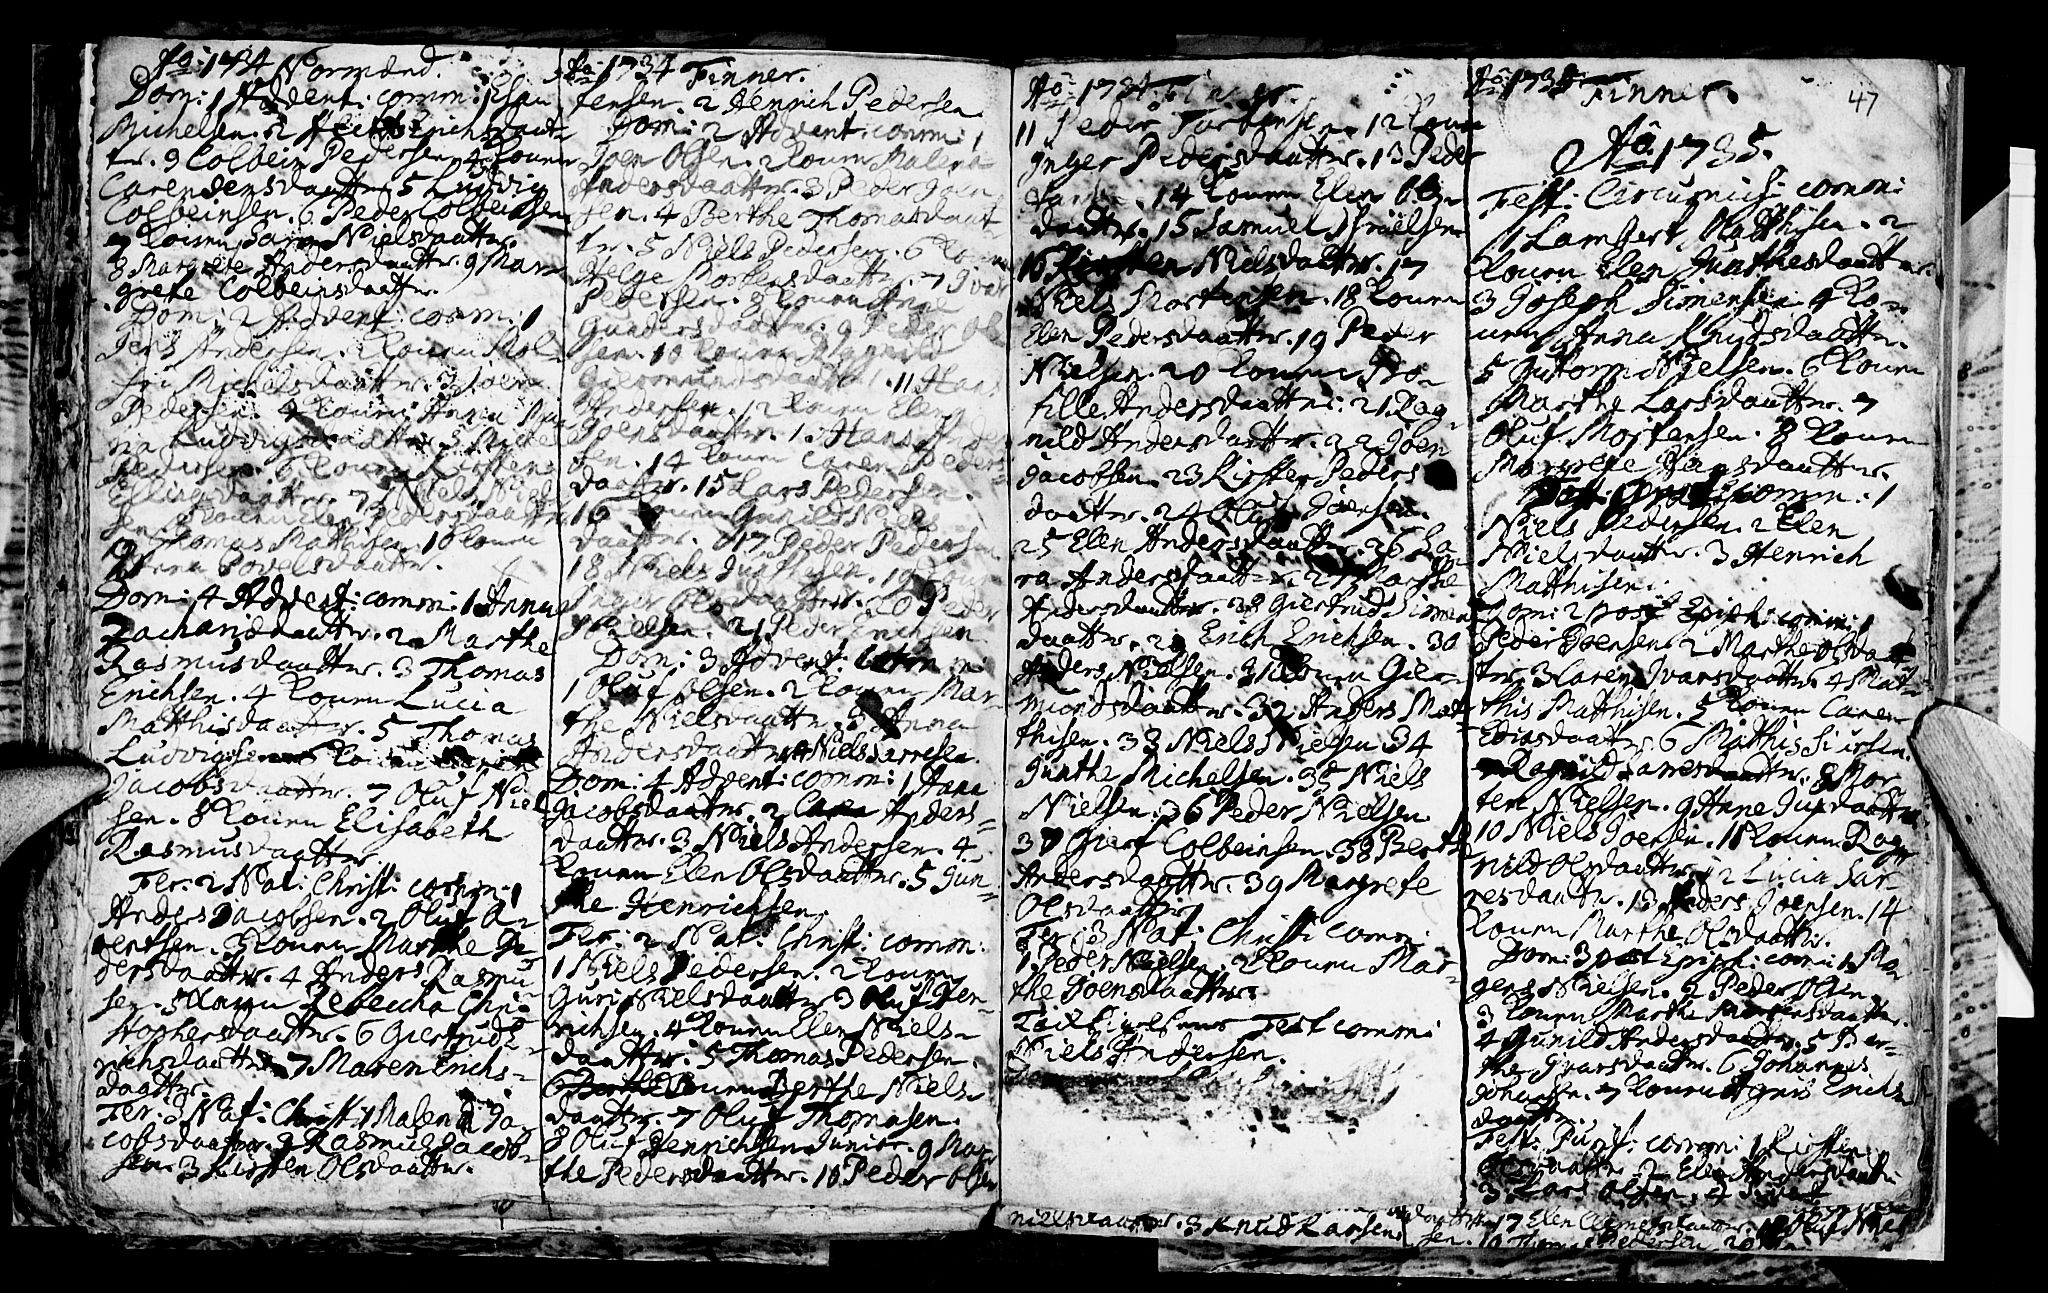 Ao: 1734 Normænd.
Dom: 1 Advent: comm: 1 Esau
Michelsen. 2 Erichsdaat-
tr. 3 Colbein Pedersen 4 Konen
Caren Jensdaattr. 5 Ludvig
Colbeinsen. 6 Peder Colbeinsen
7 Konen Sara Nielsdaattr.
8 Margrete Andersdaattr. 9 Mar-
grete Colbeinsdaattr.
Dom: 2 Advent: comm: 1
Jens Andersen. 2 Konen Mal-
fri Michelsdaattr. 3 Joen
Pedersen. 4 Konen Anna
Ludvigsdaattr. 5 Michel
Pedersen. 6 Konen Kirsten
Ellingsdaattr. 7 Niels Niel-
sen. 8 Konen Elen Pedersdaattr
9 Thomas Mathisen. 10 Konen
Anna Povelsdaattr.
Dom: 4 Advent: comm: 1 Anna
Zacharisdaattr. 2 Marthe
Rasmusdaattr. 3 Thomas
Erichsen. 4 Konen Lucia
Matthisdaattr. 5 Thomas
Ludvigsen 6 Konen
Jacobsdaattr. 7 Oluf Niel-
sen. 8 Konen Elisabeth
Rasmusdaattr.
Fer: 2 Nat: Christi: comm: 1
Anders Jacobsen. 2 Oluf A-
rentsen. 3 Konen Marthe Pe-
dersdaattr. 4 Anders Rasmu-
sen. 5 Konen Rebeccha Chri-
stophersdaattr. 6 Giertrud E-
richsdaattr 7 Maren Erichs-
daattr.
Fer: 3 Nat: Christi 1 Malena Ja-
cobsdaattr. 2 Rasmus Jacob-
sen. 3 Kirsten Olsdaattr.
Ao: 1734 Finner.
tensen. 2 Henrich Pedersen
Dom: 2 Advent: comm: 1
Joen Olsen. 2 Konen Malena
Andersdaattr. 3 Peder Joen-
sen. 4 Berthe Thomasdaat-
tr. 5 Niels Pedersen. 6 Konen
Helge Mortensdaattr. 7 Ivar
Pedersen. 8 Konen Anne
Gundersdaattr. 9 Peder Ol-
sen. 10 Konen Ragnild
Giermundsdaattr. 11 Hans
Andersen. 12 Konen Elen
Joensdaattr. 13 Hans Ander-
sen. 14 Konen Caren Peders-
daattr. 15 Lars Pedersen.
16 Konen Gunild Niels-
daattr. 17 Peder Pedersen
18 Niels Gunthesen. 19 Konen
Inger Olsdaattr. 20 Peder
Nielsen. 21 Peder Erichsen
Dom: 3 Advent: comm:
1 Oluf Olsen. 2 Konen Mar-
the Nielsdaattr. 3 Anna
Andersdaattr 4 Niels Sarresen.
Dom: 4 Advent: comm: 1 Anna
Jacobsdaattr. 2 Caren Anders-
daattr. 3 Niels Andersen. 4
Konen Elen Olsdaattr. 5 Gun-
the Henrichsen.
Fer: 2 Nat: Christi: comm:
1 Niels Pedersen. 2 Konen
Guri Nielsdaattr 3 Oluf Hen-
richsen. 4 Konen Elen Niels-
daattr. 5 Thomas Pedersen.
6 Konen Berthe Niels-
daattr. 7 Oluf Thomasen.
8 Oluf Henrichsen Junior. 9 Mar-
the Pedersdaattr. 10 Peder Olsen
Ao: 1734 Finner.
11 Peder Mortensen. 12 Konen
Inger Pedersdaattr. 13 Peder
14 Konen Elen Ols-
daattr. 15 Samuel Israelsen
16 Kirsten Nielsdaattr. 17
Niels Mortensen. 18 Konen
Elen Pedersdaattr. 19 Peder
Nielsen. 20 Konen Bo-
tille Andersdaattr. 21 Rag-
nild Andersdaattr. 22 Joen
Jacobsen. 23 Kirsten Peders
daattr. 24 Oluf Joensen.
25 Elen Andersdaattr. 26 Sa-
ra Andersdaattr. 27 Marthe
Andersdaattr. 28 Giertrud Simens
daattr. 29 Erich Erichsen. 30
Anders Nielsen. 31 Konen Gier-
mundsdaattr. 32 Anders Mat-
thisen. 33 Niels Nielsen 34
Gunthe Michelsen. 35 Niels
Nielsen. 36 Peder Nielsen
37 Giert Colbeinsen. 38 Berthe
Andersdaattr. 39 Margrete
Olsdaattr
Fer: 3 Nat: Christi comm:
1 Peder Nielsen. 2 Konen Mar-
the Joensdaattr.
Test comm:
Niels Andersen.
nielsdaattr. 3 Knud Larsen
Ao: 1735 Finner.
47
Ao 1735.
Fest: Circumcis: comm:
1 Lambert Matthisen. 2
Konen Elen Gunthesdaattr.
3 Joseph Simensen 4 Ko-
nen Anna Knudsdaattr.
5 Guttorm Nielsen. 6 Konen
Marthe Larsdaattr. 7
Oluf Mortensen. 8 Konen
Margrete Hansdaattr.
comm: 1
Niels Pedersen. 2 Elen
Nielsdaattr. 3 Henrich
Matthisen.
Dom: 2 post Epiph: comm: 1
Peder Joensen. 2 Marthe Olsdaat-
tr. 3 Caren Ivarsdaattr. 4 Mat-
this Matthisen. 5 Konen Caren
Eliasdaattr. 6 Mathis Siursen.
7 Ragnild Sarresdaattr. 8 Mor-
ten Nielsen. 9 Anne Jupsdaattr.
10 Niels Joensen. 11 Konen Rag-
nild Olsdaattr. 12 Lucia Sar-
resdaattr. 13 Peder Joensen. 14
Konen Marthe Olsdaattr.
Dom: 3 post Epiph: comm: 1 Mo-
gens Nielsen. 2 Peder Olsen
3 Konen Marthe Mortensdaattr.
4 Gunild Andersdaattr. 5 Ber-
the Ivarsdaattr. 6 Johannes
Johansen. 7 Konen Agnis Erichs
daattr.
Fest: Purif: comm: 1 Kirsten
Olsdaattr. 2 Elen Andersdaattr.
3 Lars Olsen. 4 Sivert
daattr. 17 Elen Clemetsdaattr. 18 Oluf Niel
sen. 19 Thomas Pedersen 20